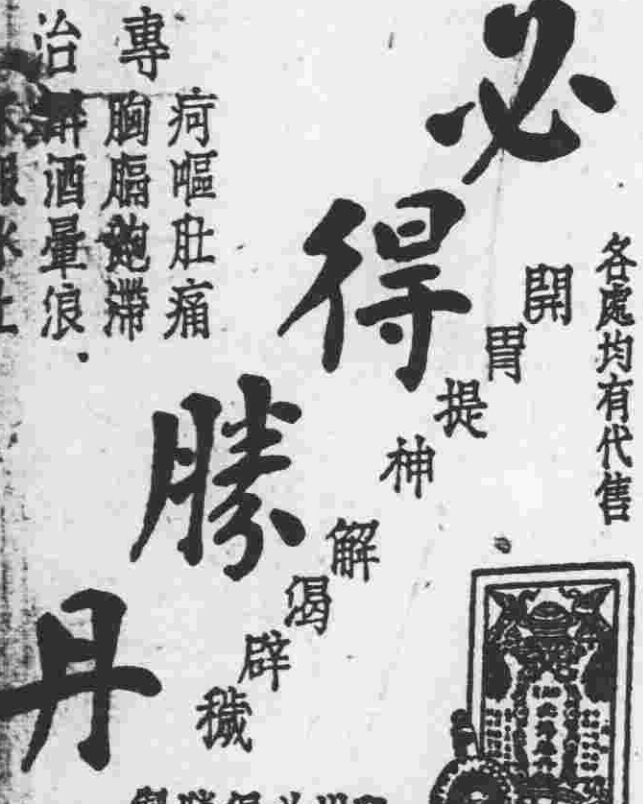 各處均有代售
必得勝丹
開胃提神解渴辟穢
專治
疴嘔肚痛
胸膈飽滯
醉酒暈浪
水土